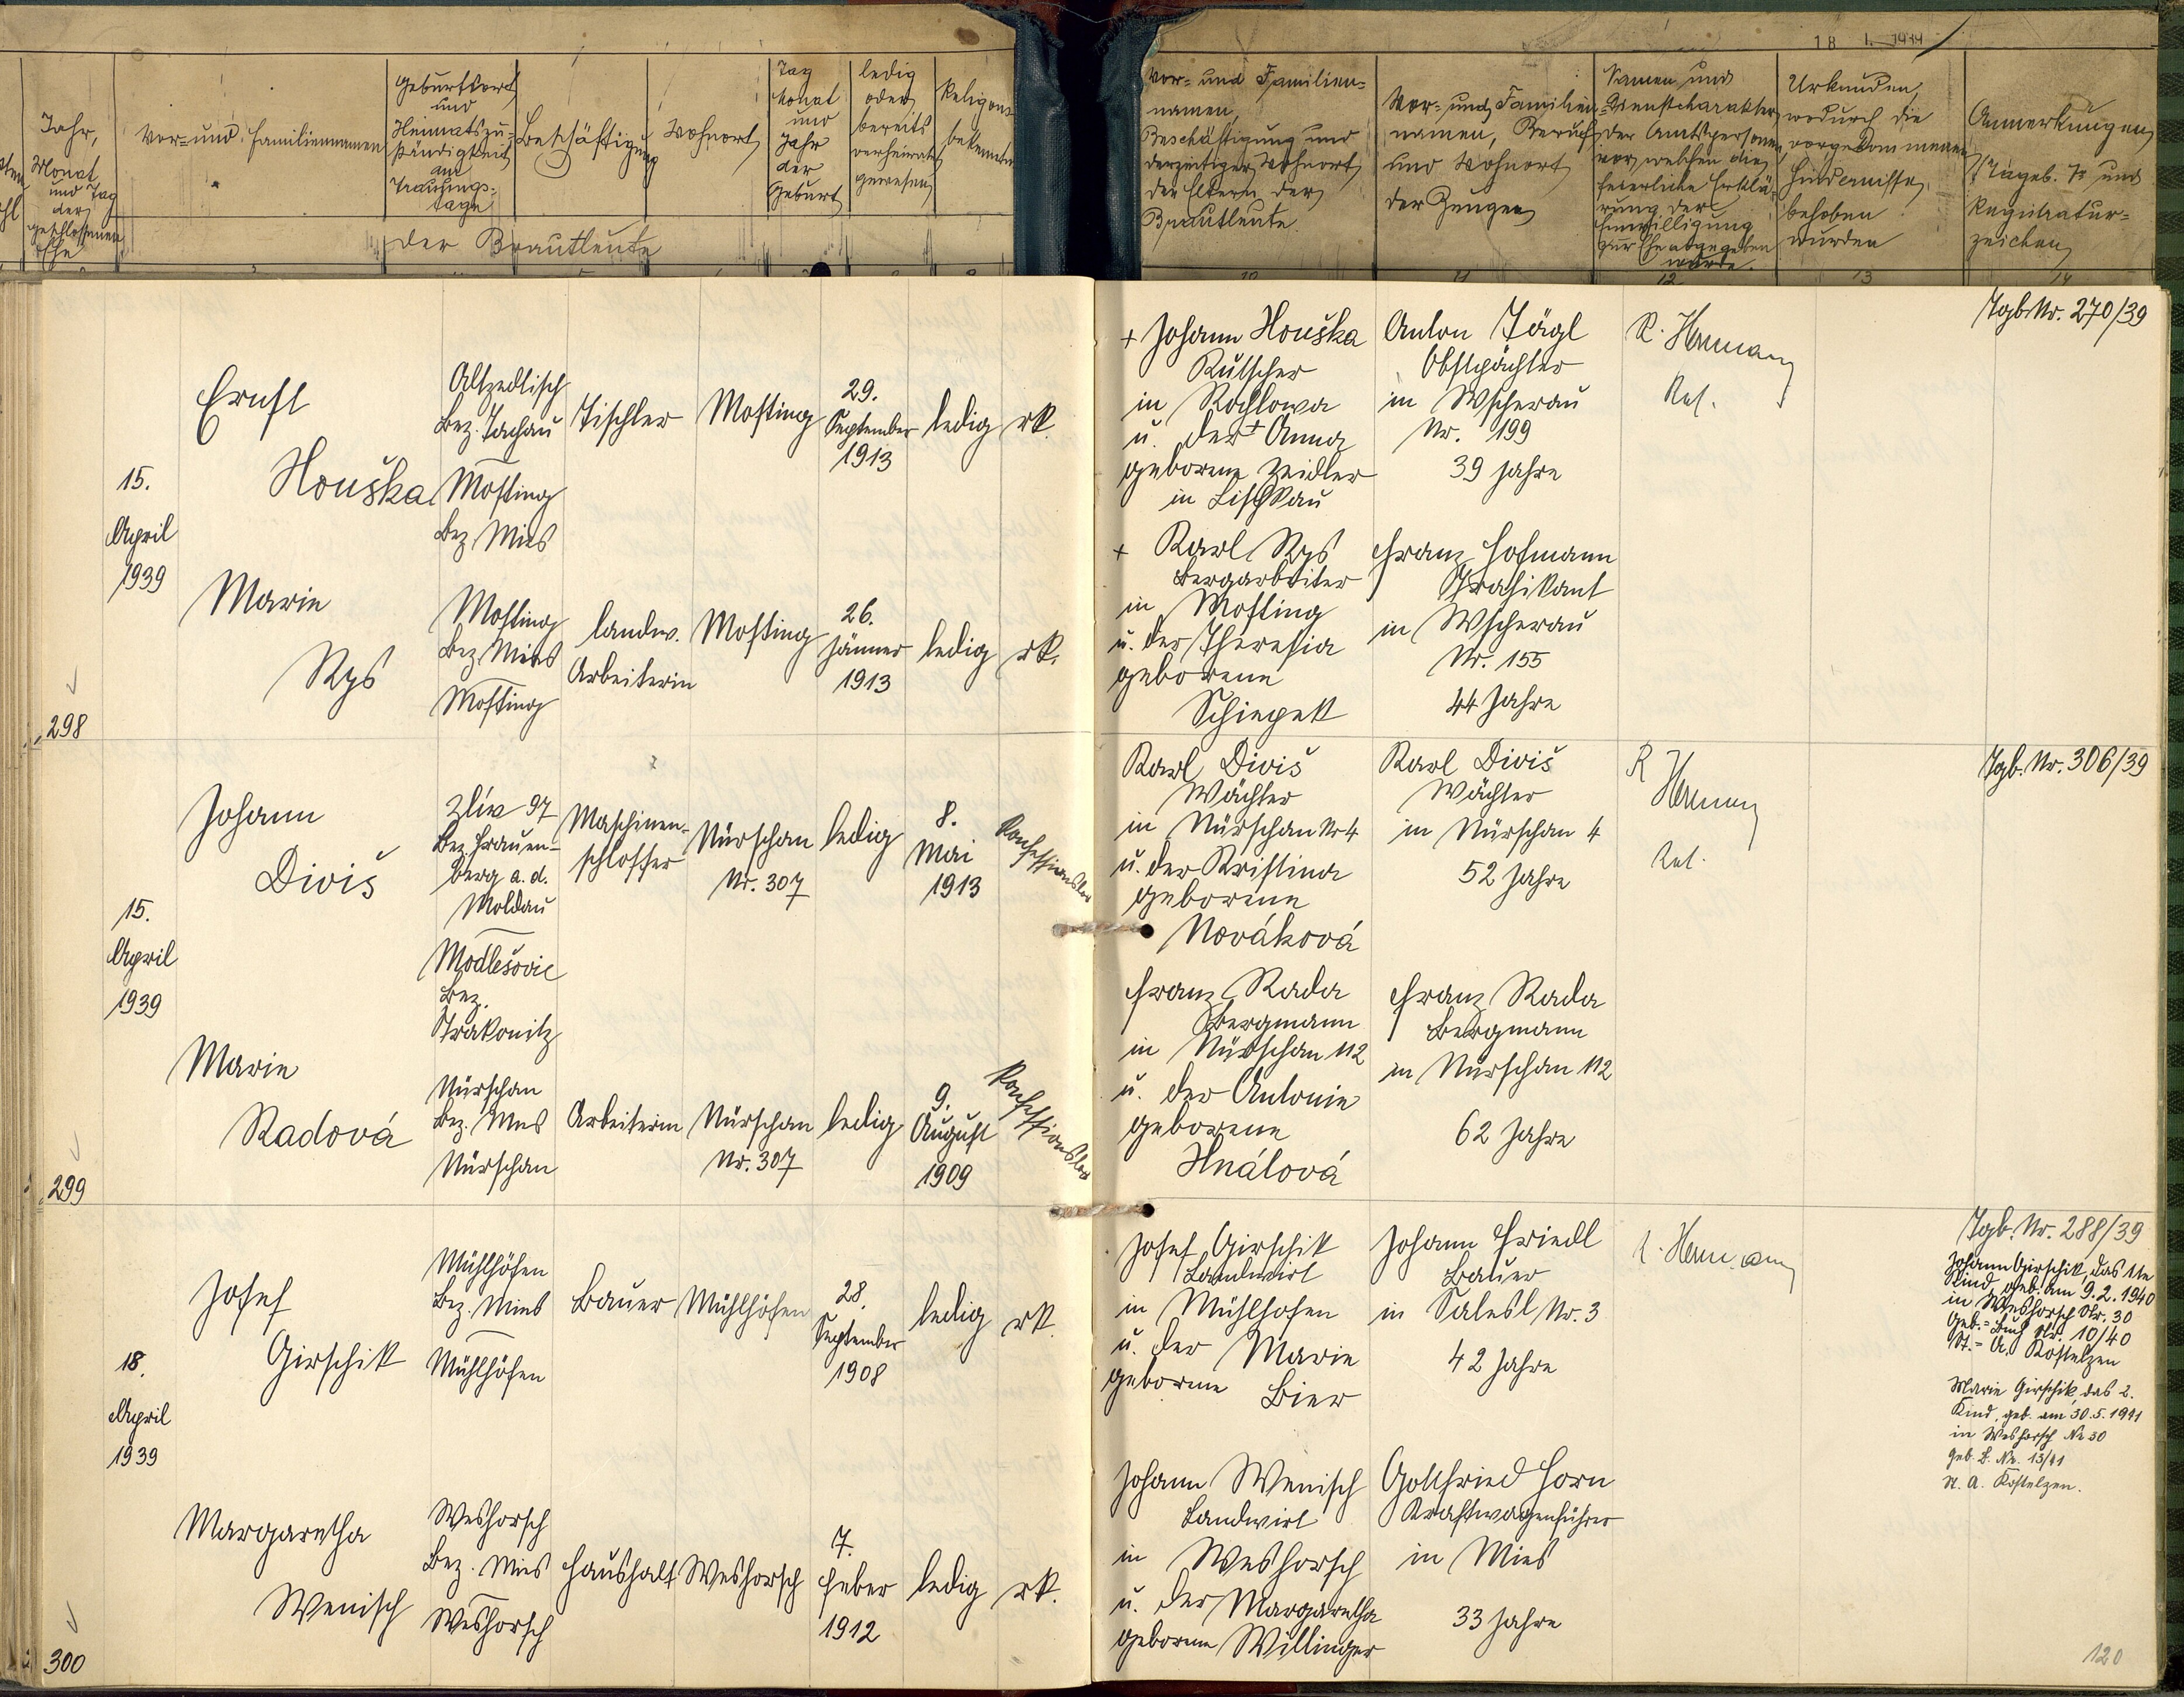 Jahr,
Monat
und Tag
der
geschlossenen
Ehe
Vor- und Familiennamen
Geburtsort
und
Heimatszu-
ständigkeit
am
Trauungs-
tage
Beschäftigung
Wohnort
Tag
Monat
und
Jahr
der
Geburt
ledig
oder
bereits
verheiratet
gewesen
Religions
bekenntnis
der Brautleute
Vor- und Familien-
namen,
Beschäftigung und
derzeitiger Wohnort
der Eltern der
Brautleute.
Vor- und Familien-
namen, Beruf
und Wohnort
der Zeugen
Namen und
Dienstcharakter
der Amtsperson
vor welchen die
feierliche Erklä-
rung der
Einwilligung
zur Ehe abgegeben
wurde.
Urkunden,
wodurch die
vorgekommenen
Hindernisse
behoben
wurden
Anmerkungen
Tageb. Nr und
Registratur-
zeichen
10
11
12
13
14
298
15.
April
1939
Ernst
Houška
Altzedlisch
Bez. Tachau
Mosting
Bez Mies
Tischler
Mosting
29.
September
1913
ledig
rk.
+ Johann Houška
Kutscher
in Rochlowa
u. der + Anna
geborene Zeidler
in Lischkau
Anton Jägl
Obstpächter
in Wscherau
Nr. 199
39 Jahre
R. Hermann
Ref.
Tgb Nr. 270/39
Marie
Rys
Mosting
Bez Mies
Mosting
landw.
Arbeiterin
Mosting
26.
Jänner
1913
ledig
rk.
+ Karl Rys
Bergarbeiter
in Mosting
u. der Theresia
geborene
Schiepek
Franz Hofmann
Trafikant
in Wscherau
Nr. 155
44 Jahre
299
15.
April
1939
Johann
Diviš
Zliw 97
Bez. Frauen-
berg a. d.
Moldau
Modlešovic
Bez.
Strakonitz
Maschinen-
schlosser
Nürschan
Nr. 307
ledig
8.
Mai
1913
Konfessionslos
Karl Diviš
Wächter
in Nürschan Nr 4
u. der Kristina
geborene
Nováková
Karl Diviš
Wächter
in Nürschan 4
52 Jahre
R
Hermann
Ref.
Tgb. Nr. 306/39
Marie
Radová
Nürschan
Bez. Mies
Nürschan
Arbeiterin
Nürschan
Nr. 307
ledig
9.
August
1909
Konfessionslos
Franz Rada
Bergmann
in Nürschan 112
u. der Antonie
geborene
Hnátová
Franz Rada
Bergmann
in Nürschan 112
62 Jahre
300
18.
April
1939
Josef
Girschik
Mühlhöfen
Bez. Mies
Mühlhöfen
Bauer
Mühlhöfen
28.
September
1908
ledig
rk.
Josef Girschik
Landwirt
in Mühlhöfen
u. der Marie
geborene Bier
Johann Friedl
Bauer
in Salesl Nr. 3
42 Jahre
R. Hermann
Tgb. Nr. 288/39
Johann Girschik, das 1te
Kind, geb. am 9.2.1940
in Weshorsch Nr. 30
Geb.-Buch Nr. 10/40
St.-A. Kostelzen
Marie Girschik, das 2.
Kind, geb. am 30.5.1941
in Weshorsch Nr 30
Geb. B. Nr. 13/41
St. A. Kostelzen.
Margaretha
Wenisch
Weshorsch
Bez. Mies
Weshorsch
Haushalt
Weshorsch
7.
Feber
1912
ledig
rk.
Johann Wenisch
Landwirt
in Weshorsch
u. der Margaretha
geborene Willinger
Gottfried Horn
Kraftwagenführer
in Mies
33 Jahre
120